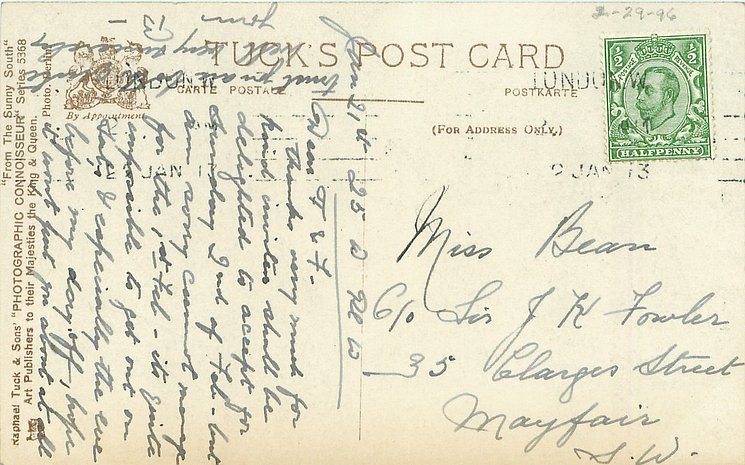 2-29-96
TUCK'S POST CARD
CARTE POSTALE
POSTKARTE
By Appointment
(FOR ADDRESS ONLY.)
LONDON. W.
LONDON. W.
JAN 13
JAN 13
½
½
POSTAGE
REVENUE
HALFPENNY
"From The Sunny South"
Raphael Tuck & Sons' "PHOTOGRAPHIC CONNOISSEUR" Series 5368
Art Publishers to their Majesties the King & Queen.
Photo. Berlin
Jan 21st 25 D Pl W
Dear F & F.
Thanks very much for
kind invite shall be
delighted to accept for
Sunday 2nd of Feb - but
am sorry cannot manage
for the 1st Feb - its quite
impossible to get out on
Sats & especially the eve
before my day off, hope
it wont put you about at all
Miss Bean
C/o Sir J K Fowler
35 Clarges Street
Mayfair
S.W.